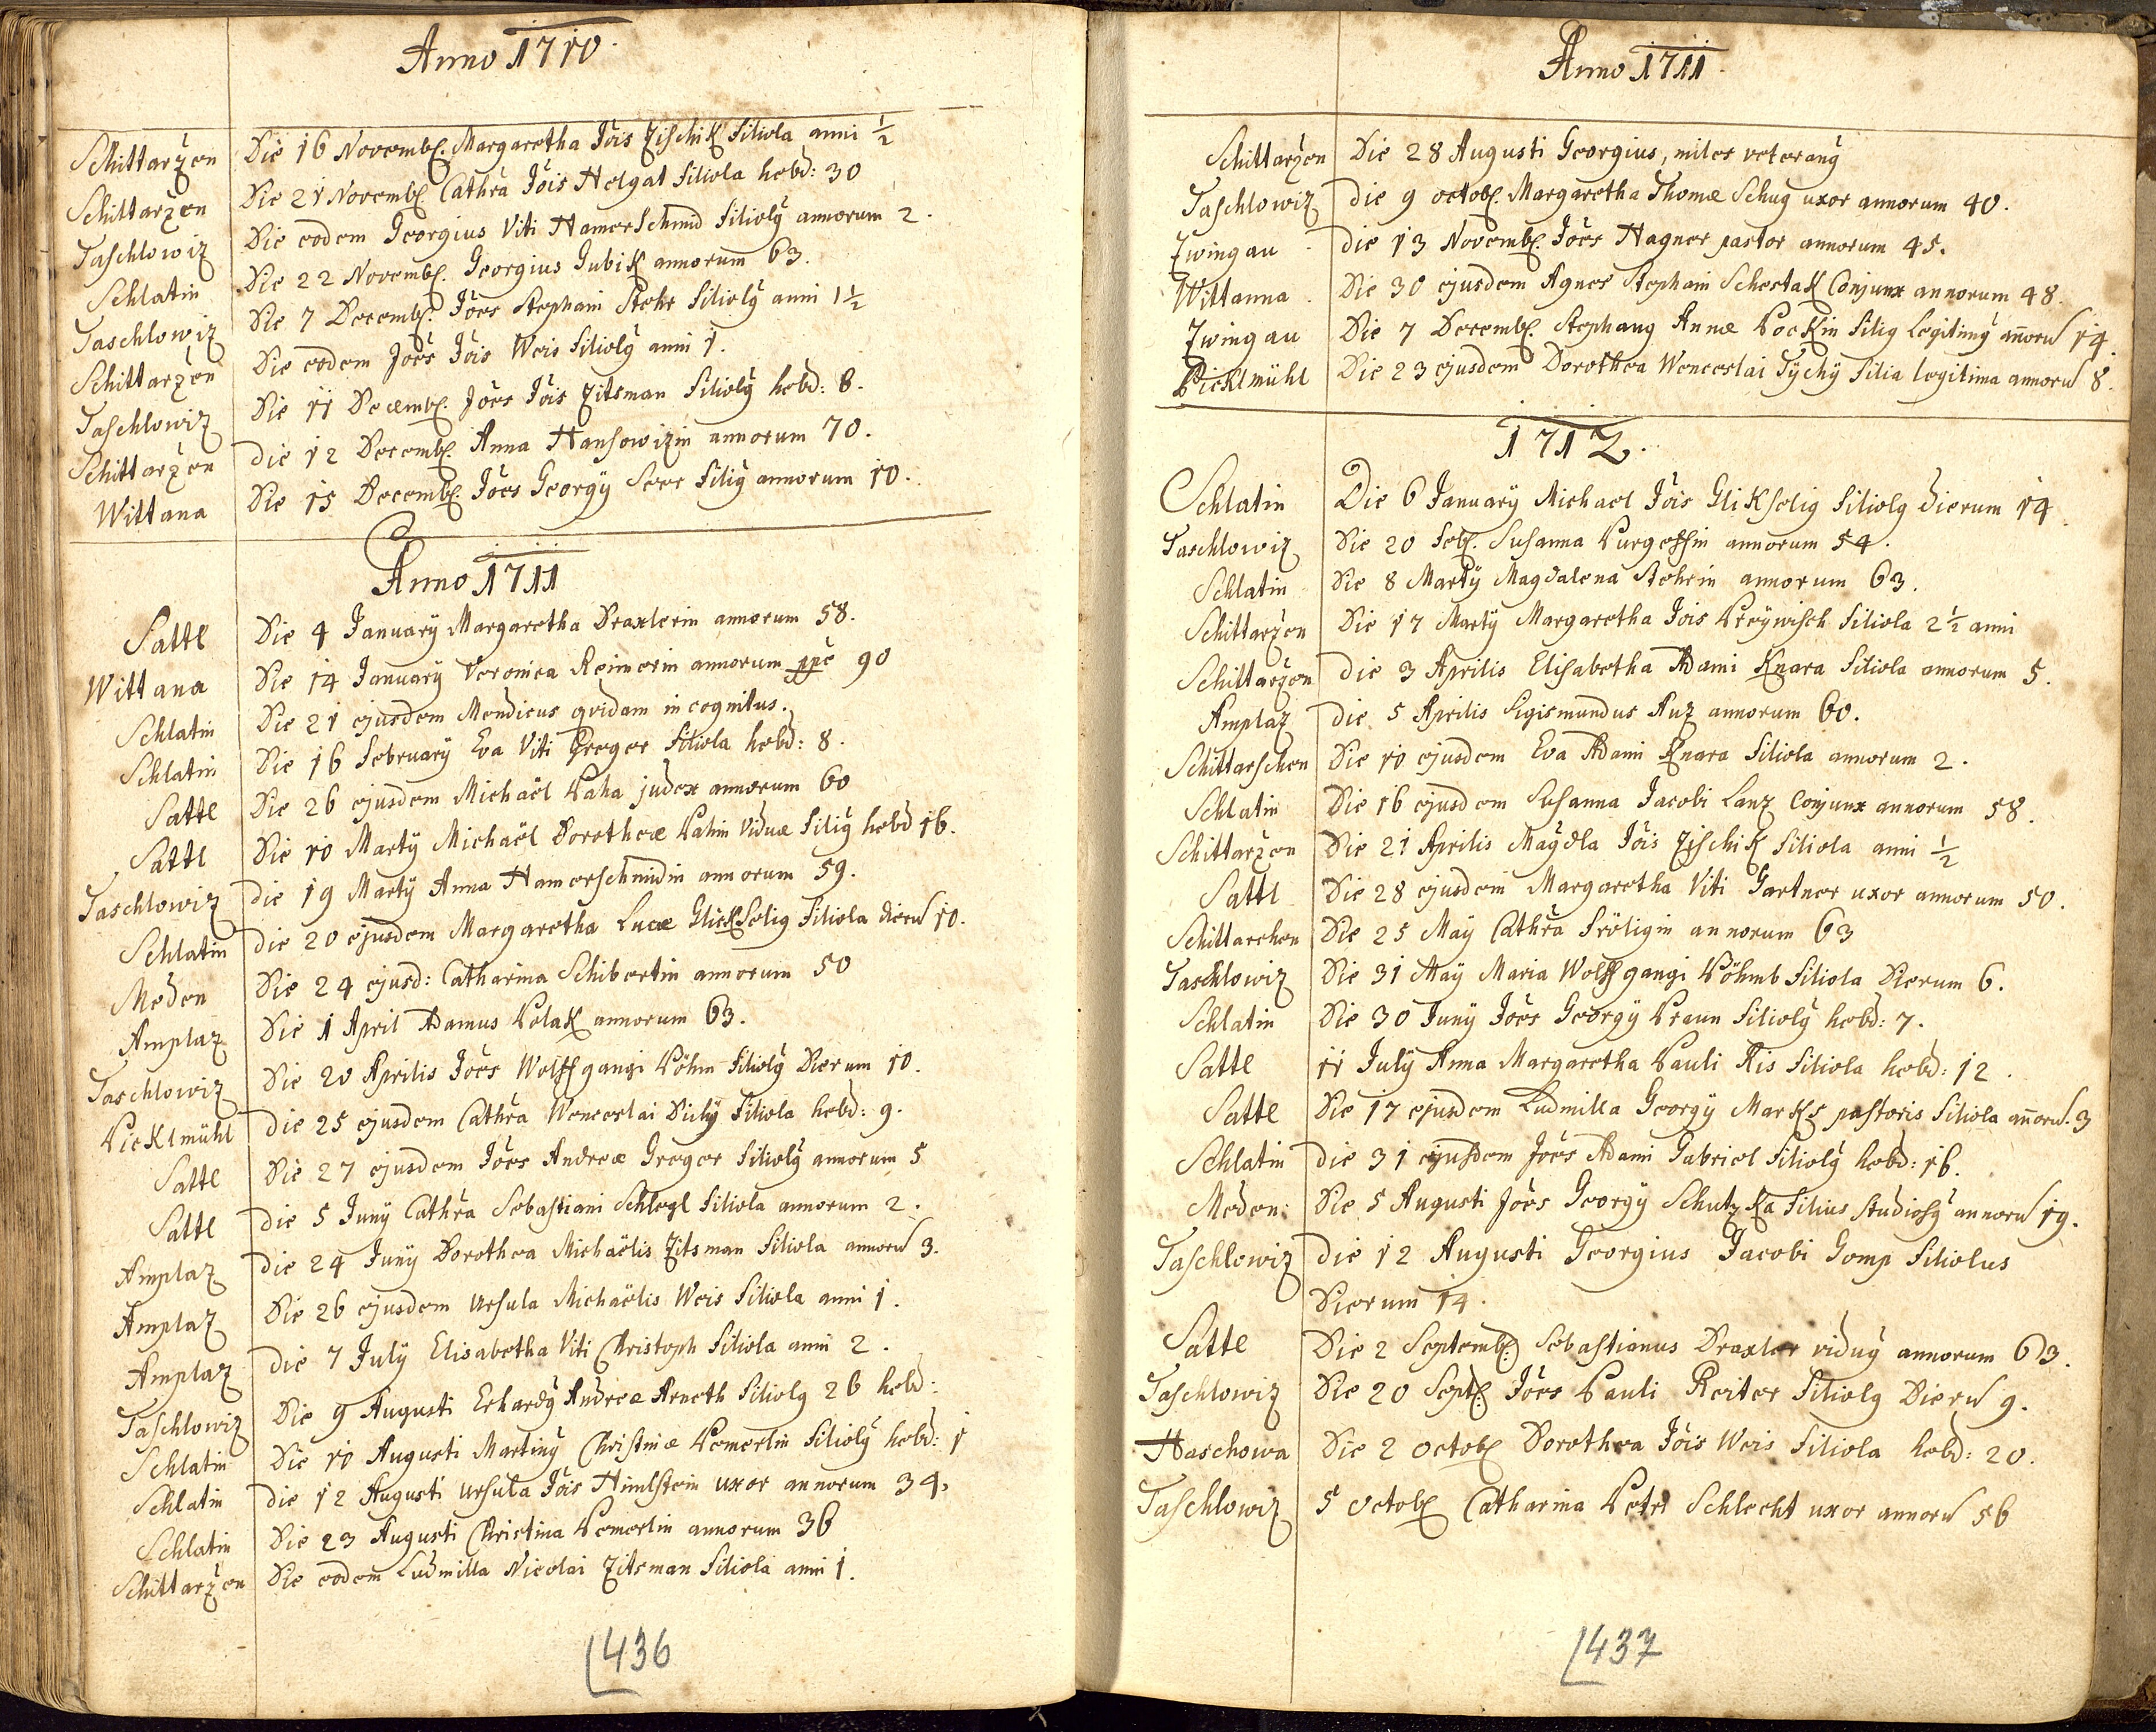 Anno 1710.
Schittarzen Die 16 Novemb. Margaretha Jois Zischik filiola anni ½
Schittarzen Die 21 Novemb. Cathra Jois Helgat filiola hebd: 30
Taschlowiz Die eodem Georgius Viti HamerSchmid filiolq annorum 2.
Schlatin Die 22 Novemb. Georgius Gubik annorum 63.
Taschlowiz Die 7 Decemb. Joes Stephani Stehr filiolq anni 1½
Schittarzen Die eodem Joes Jois Weis filiolq anni 1.
Taschlowiz Die 11 Decemb. Joes Jois Zitsman filiolq hebd: 8.
Schittarzen die 12 Decemb. Anna Hansowizin annorum 70.
Wittana Die 15 Decemb. Joes Georgÿ Seer filiq annorum 10.
Anno 1711
Sattl Die 4 Januarÿ Margaretha Draxlerin annorum 58.
Wittana Die 14 Januarÿ Veronica Reimerin annorum ppe 90
Schlatin Die 21 ejusdem Mendicus qvidam in cognitus.
Schlatin Die 16 Februarÿ Eva Viti Greger filiola hebd: 8.
Sattl Die 26 ejusdem Michaël Paha judex annorum 60
Sattl Die 10 Martÿ Michaël Dorotheæ Pahin Viduæ filiq hebd 16.
Taschlowiz die 19 Martÿ Anna Hamerschmidin annorum 59.
Schlatin die 20 ejusdem Margaretha Lucæ GlickSelig filiola dieru 10.
Meden Die 24 ejusd: Catharina Schibertin annorum 50
Amplaz Die 1 April Adamus Polak annorum 63.
Taschlowiz Die 20 Aprilis Joes Wolffgangi Böhm filiolq Dierum 10.
Picklmühl die 25 ejusdem Cathra Wenceslai Dichÿ filiola hebd: 9.
Sattl Die 27 ejusdem Joes Andreæ Greger filiolq annorum 5
Sattl die 5 Junÿ Cathra Sebastiani Schlegl filiola annorum 2.
Amplaz die 24 Junÿ Dorothea Michaëlis Zitsman filiola annoru 3.
Amplaz Die 26 ejusdem Ursula Michaëlis Weis filiola anni 1.
Amplaz die 7 Julÿ Elisabetha Viti Christoph filiola anni 2.
Taschlowiz Die 9 Augusti Erhardq Andreæ Arneth filiolq 26 hebd:
Schlatin Die 10 Augusti Martinq Christinæ Pemerlin filiolq hebd: 1
Schlatin die 12 Augusti Ursula Jois Himlstein uxor annorum 34.
Schlatin Die 23 Augusti Christina Pemerlin annorum 36
Schittarzen Die eodem Ludmilla Nicolai Zitsman filiola anni 1.
436
Anno 1711.
Schittarzen Die 28 Augusti Georgius, miles veteranq
Taschlowiz die 9 octob. Margaretha Thomæ Schug uxor annorum 40.
Zwingau die 13 Novemb. Joes Hagner pastor annorum 45.
Wittanna Die 30 ejusdem Agnes Stephani Schestak Conjunx annorum 48.
Zwingau Die 7 Decemb. Stephanq Annæ Pockin filiq Legitimq annoru 14.
Picklmühl Die 23 ejusdem Dorothea Wenceslai Tÿchÿ filia legitima annoru 8.
1712.
Schlatin Die 6 Januarÿ Michael Jois Glikselig filiolq dierum 14.
Taschlowiz Die 20 Feb. Susanna Purgessin annorum 54.
Schlatin Die 8 Martÿ Magdalena Stehrin annorum 63.
Schittarzen Die 17 Martÿ Margaretha Jois Preÿwisch filiola 2½ anni
Schittarzen die 3 Aprilis Elisabetha Adami Knara filiola annorum 5.
Amplaz die 5 Aprilis Sigismundus Auz annorum 60.
Schittarschen Die 10 ejusdem Eva Adami Knara filiola annorum 2.
Schlatin Die 16 ejusdem Susanna Jacobi Lanz Conjunx annorum 58.
Schittarzen Die 21 Aprilis Magdla Jois Zischik filiola anni ½
Sattl Die 28 ejusdem Margaretha Viti Gartner uxor annorum 50.
Schittarchen Die 25 Maÿ Cathra Fröligin annorum 63
Taschlowiz Die 31 Maÿ Maria Wolffgangi Böhmb filiola Dierum 6.
Schlatin Die 30 Junÿ Joes Georgÿ Praun filiolq hebd: 7.
Sattl 11 Julÿ Anna Margaretha Pauli Ris filiola hebd: 12.
Sattl Die 17 ejusdem Ludmilla Georgÿ Marks pastoris filiola annoru. 3
Schlatin die 31 ejusdem Joes Adami Gabriel filiolq hebd: 16.
Meden: Die 5 Augusti Joes Georgÿ Schutzka filius studiosq annoru 19.
Taschlowiz die 12 Augusti Georgius Jacobi Gomp filiolus
Dierum 14.
Sattl Die 2 Septemb: Sebastianus Draxler viduq annorum 63.
Taschlowiz Die 20 Sept: Joes Pauli Reiter filiolq Dieru 9.
Haschowa Die 2 octob Dorothea Jois Weis filiola hebd: 20.
Taschlowiz 5 octob Catharina Petri Schlecht uxor annoru 56
437